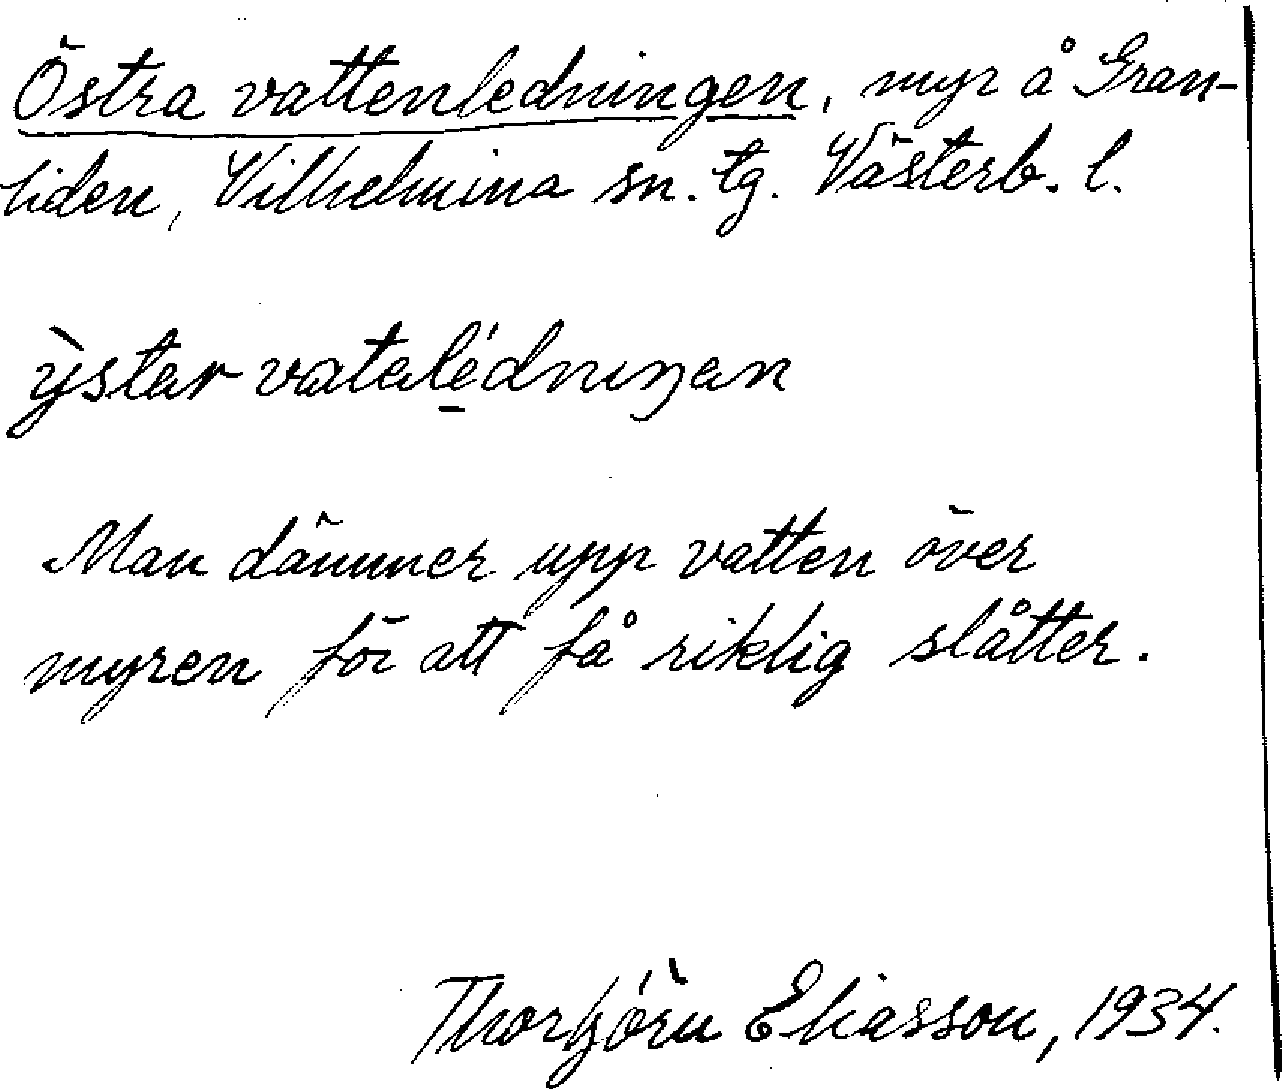 Östra vattenledningen, myr å Gran-
liden, Vilhelmina sn. tg. Västerb. l.
ỳstar vatalédnıŋan
Man dämmer upp vatten över
myren för att få riklig slåtter.
Thorbjörn Eliasson, 1934.